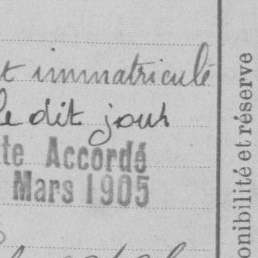 t immatriculé
le dit jour
te Accordé
Mars 1905
onibilité et réserve